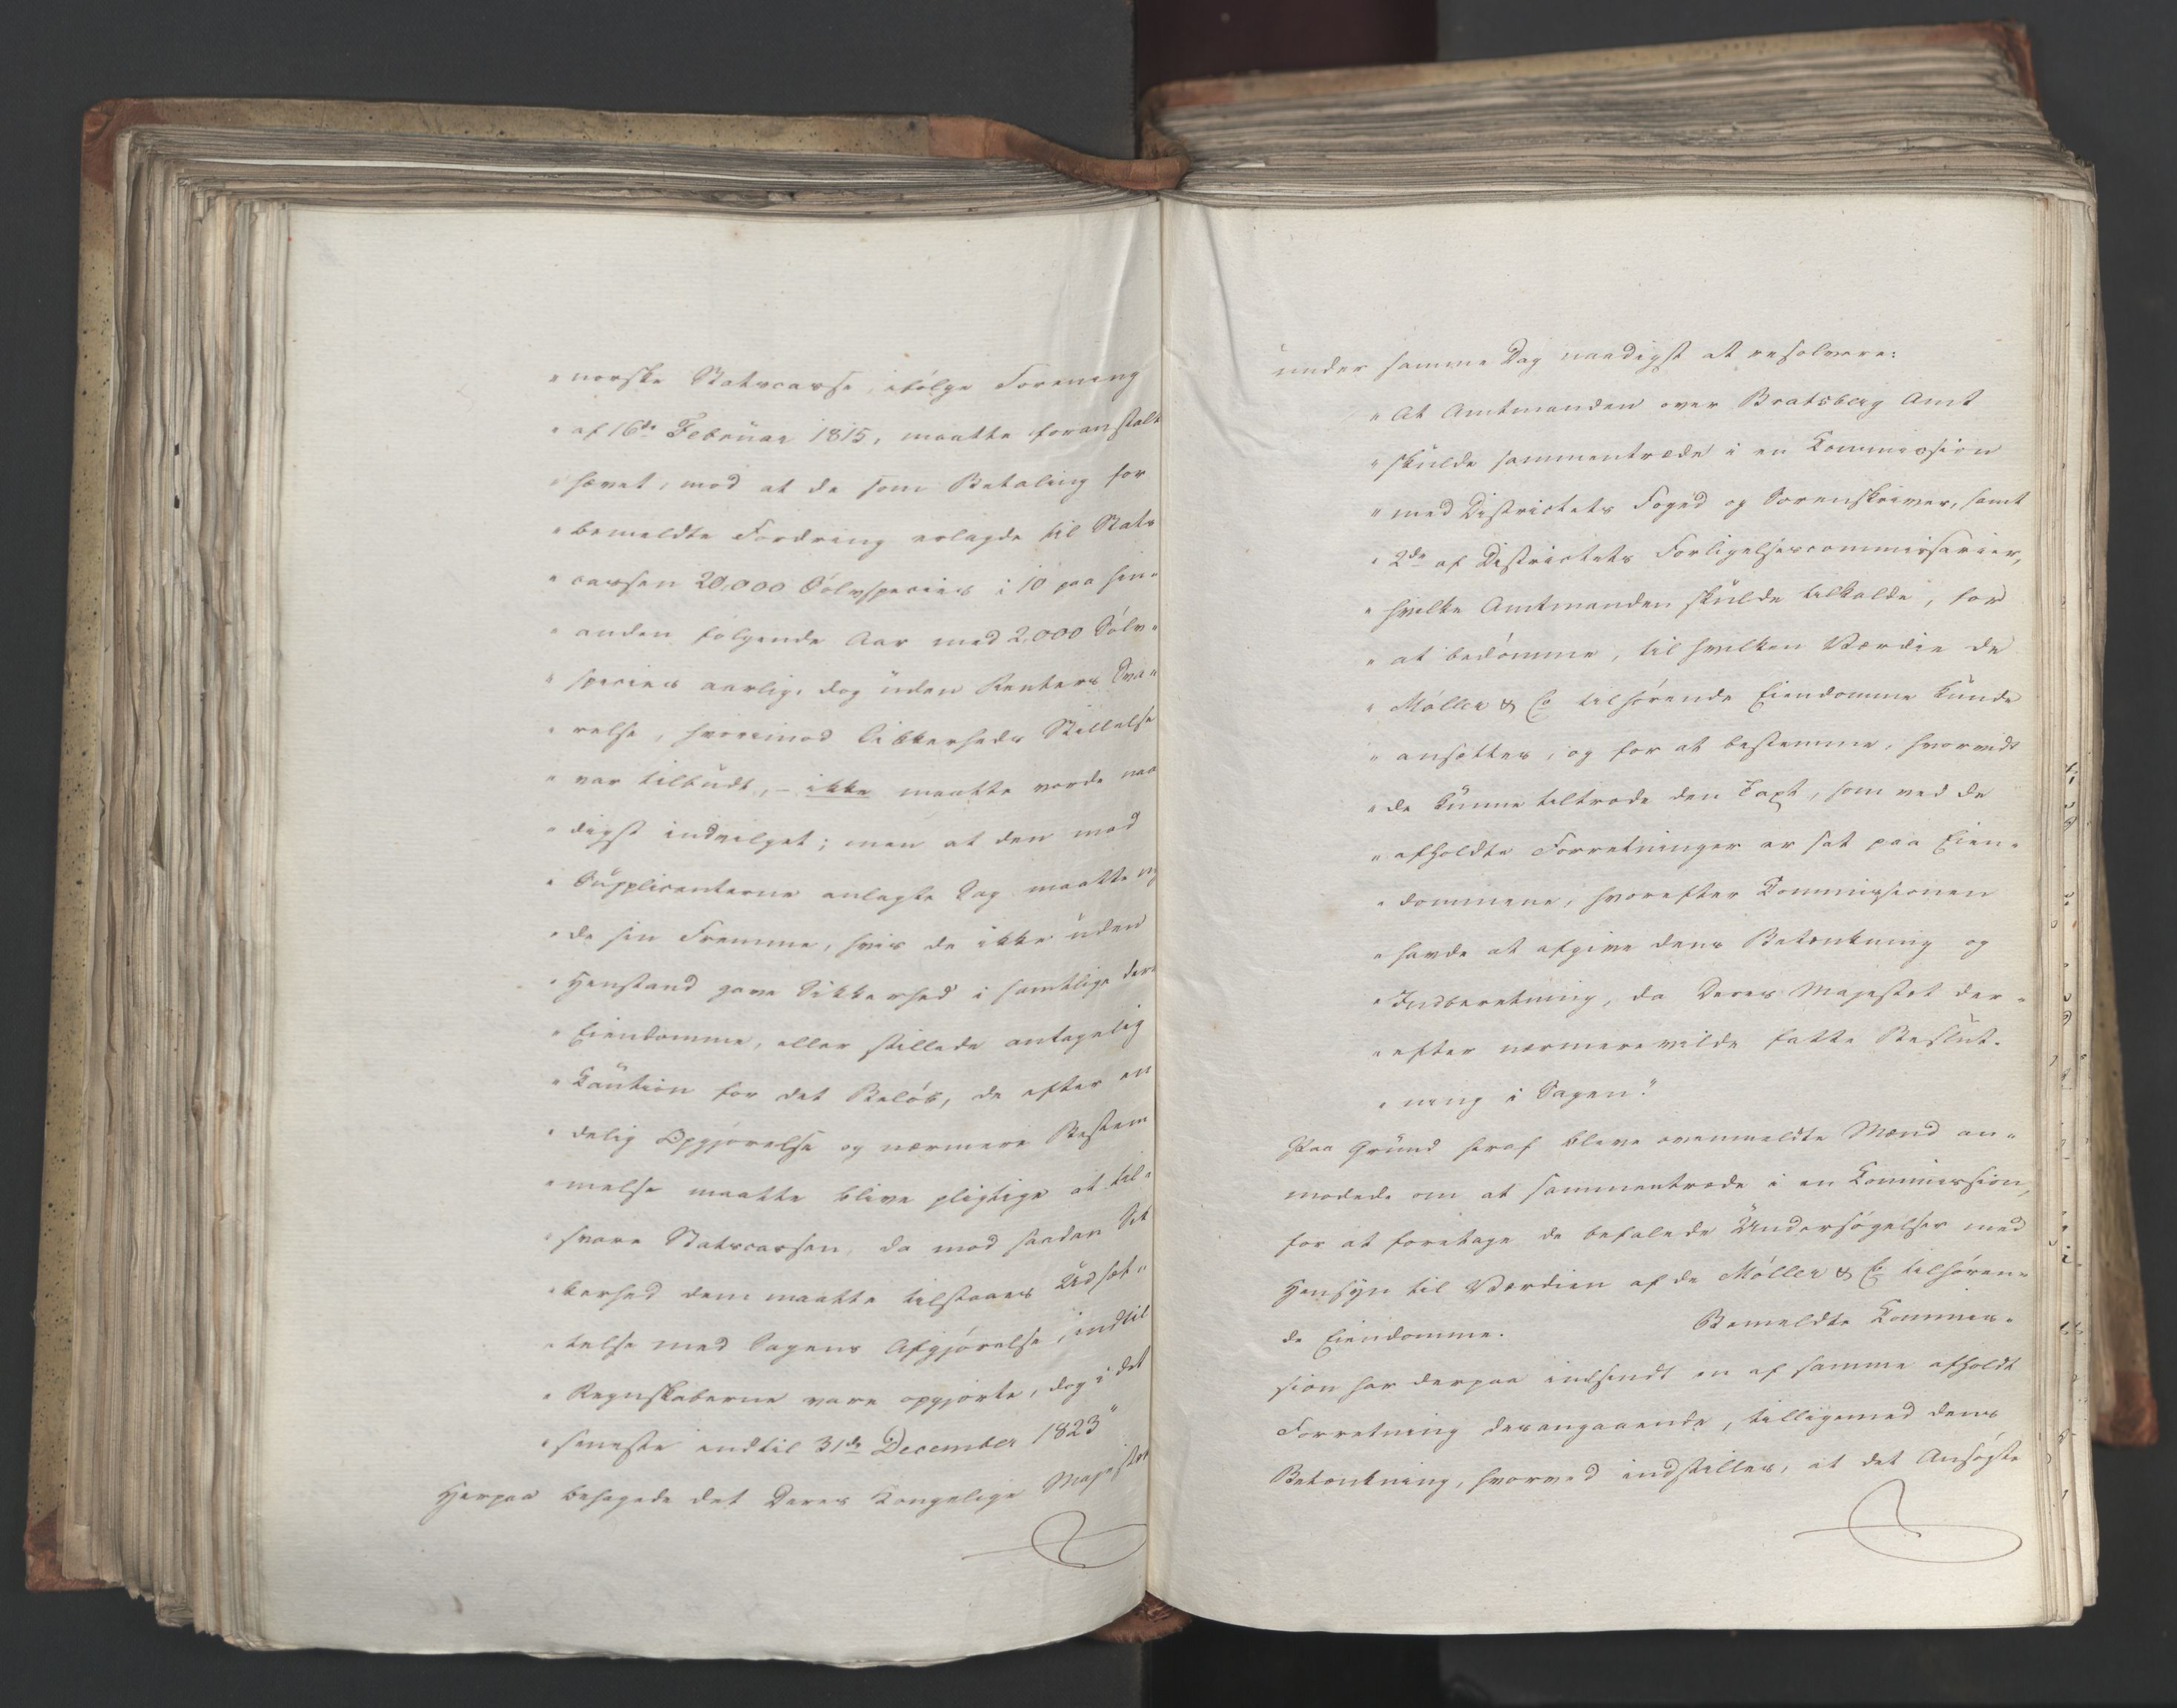 "norske Statscasse, ifølge Forening
"af 16de Februar 1815, maatte foranstalt
"hævet, mod at de som Betaling for
"bemeldte Fordring erlagde til Stats
"cassen 20,000 Sølvspecies i 10 paa hin-
"anden følgende Aar med 2,000 Sølv-
"species aarlig, dog uden Renters Sva-
"relse, hvorimod Sikkerheds Stillelse
"var tilbudt, – ikke maatte vorde naa
"digst indvilget; men at den mod
"Supplicanterne anlagte Sag maatte ny
"de sin Fremme, hvis de ikke uden
"Henstand gave Sikkerhed i samtlige der
"Eiendomme, eller stillede antagelig
"Caution for det Beløb, de efter en
"delig Opgjørelse og nærmere Bestem
"melse maatte blive pligtige at til-
"svare Statscassen, da mod saadan Sik
"kerhed dem maatte tilstaaes Udsæt-
"telse med Sagens Afgjørelse, indtil
"Regnskaberne vare opgjorte, dog i det
"seneste indtil 31de December 1823"
Herpaa behagede det Deres Kongelige Majestet
under samme Dag naadigst at resolvere:
"At Amtmanden over Bratsberg Amt
"skulde sammentræde i en Kommission
"med Districtets Foged og Sorenskriver, samt
"2de af Districtets Forligelsescommissairer,
"hvilke Amtmanden skulde tilkalde, for
"at bedømme, til hvilken Værdie de
"Møller & Co tilhørende Eiendomme kunde
"ansættes, og for at bestemme, hvorvidt
"de kunne tiltræde den Taxt, som ved de
"afholdte Forretninger er sat paa Eien-
"dommene, hvorefter Commissionen
"havde at afgive dens Betænkning og
"Indberetning, da Deres Majestet der-
"efter nærmere vilde fatte Beslut-
"ning i Sagen."
Paa Grund heraf bleve ovenmeldte Mænd an-
modede om at sammentræde i en Kommission,
for at foretage de befalede Undersøgelser med
Hensyn til Værdien af de Møller & Co tilhøren-
de Eiendomme. Bemeldte Kommis-
sion har derpaa indsendt en af samme afholdt
Forretning desangaaende, tilligemed dens
Betænkning, hvorved indstilles, at det Ansøgte